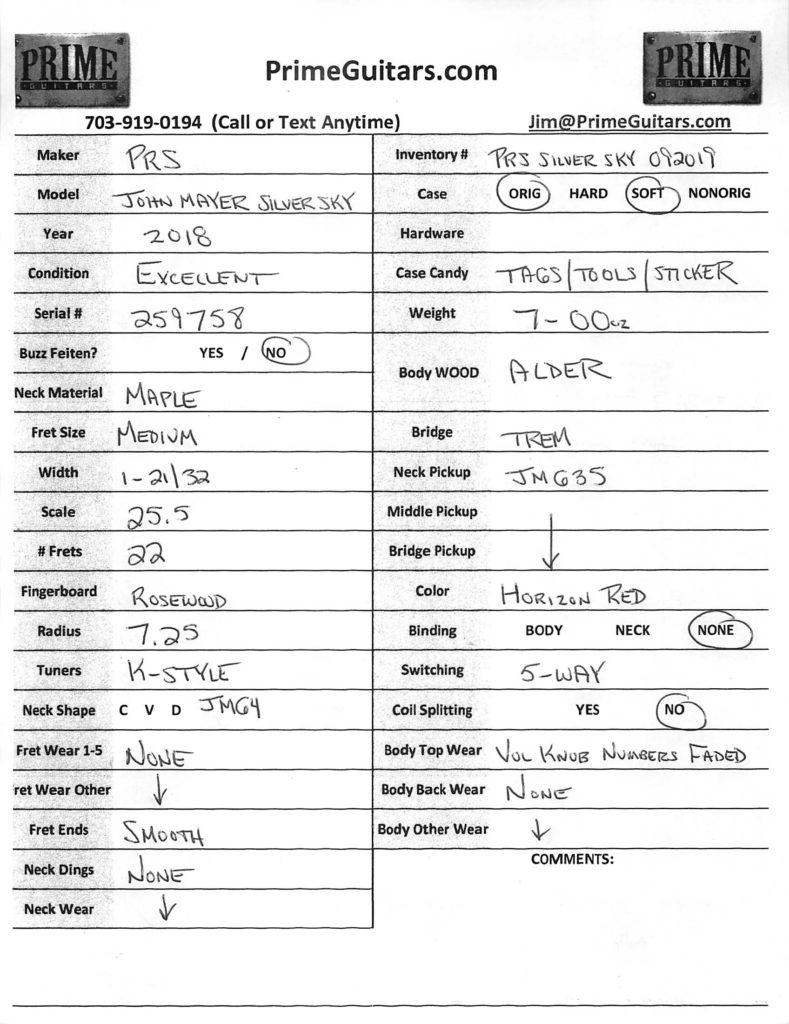 PRIME
GUITARS
PrimeGuitars.com
PRIME
GUITARS
703-919-0194 (Call or Text Anytime)
Jim@PrimeGuitars.com
Maker PRS
Model JOHN MAYER SILVER SKY
Year 2018
Condition EXCELLENT
Serial # 259758
Buzz Feiten? YES / NO
Neck Material MAPLE
Fret Size MEDIUM
Width 1-21/32
Scale 25.5
# Frets 22
Fingerboard ROSEWOOD
Radius 7.25
Tuners K-STYLE
Neck Shape C V D JM64
Fret Wear 1-5 NONE
ret Wear Other ↓
Fret Ends SMOOTH
Neck Dings NONE
Neck Wear ↓
Inventory # PRS SILVER SKY 092019
Case ORIG HARD SOFT NONORIG
Hardware
Case Candy TAGS/TOOLS/STICKER
Weight 7-00oz
Body WOOD ALDER
Bridge TREM
Neck Pickup JM635
Middle Pickup ↓
Bridge Pickup
Color HORIZON RED
Binding BODY NECK NONE
Switching 5-WAY
Coil Splitting YES NO
Body Top Wear VOL KNOB NUMBERS FADED
Body Back Wear NONE
Body Other Wear ↓
COMMENTS: